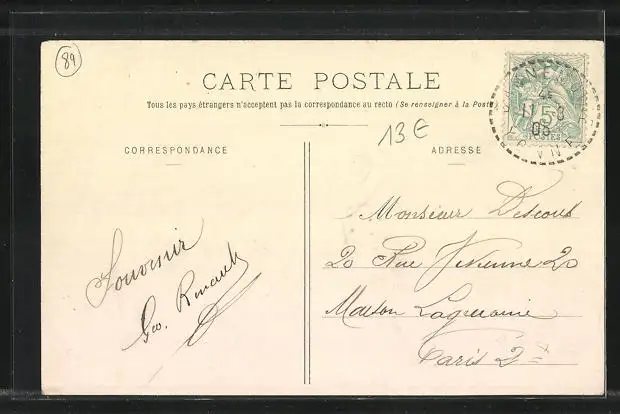 89
CARTE POSTALE
Tous les pays étrangers n'acceptent pas la correspondance au recto (Se renseigner à la Poste)
13€
CORRESPONDANCE
ADRESSE
4
11-8
05
5
POSTES
YONNE
Souvenir
Geo. Renault
Monsieur Descout
20 Rue Vivienne 20
Maison
Paris 2e